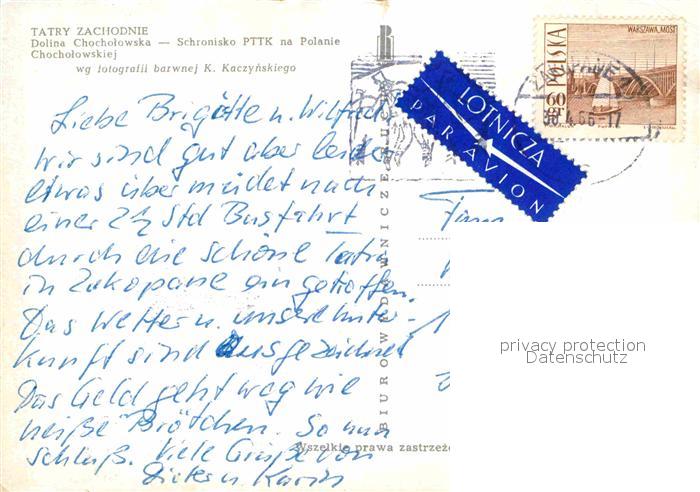 TATRY ZACHODNIE
Dolina Chochołowska — Schronisko PTTK na Polanie
Chochołowskiej
wg fotografii barwnej K. Kaczyńskiego
Liebe Brigitte u. Wilfried
wir sind gut aber leider
etwas übermüdet nach
einer 2½ Std Busfahrt
durch die schöne Tatra
in Zakopane eingetroffen.
Das Wetter u. unsere Unter-
kunft sind ausgezeichnet
Das Geld geht weg wie
heiße Brötchen. So nun
schluß. Viele Grüße von
Dieter u Karin
BIURO WYDAWNICZE RUCH
Wszelkie prawa zastrzeż
LOTNICZA
PAR AVION
WARSZAWA, MOST
POLSKA
60 GR
ZAKOPANE
30.4.66-17
Fam
privacy protection
Datenschutz